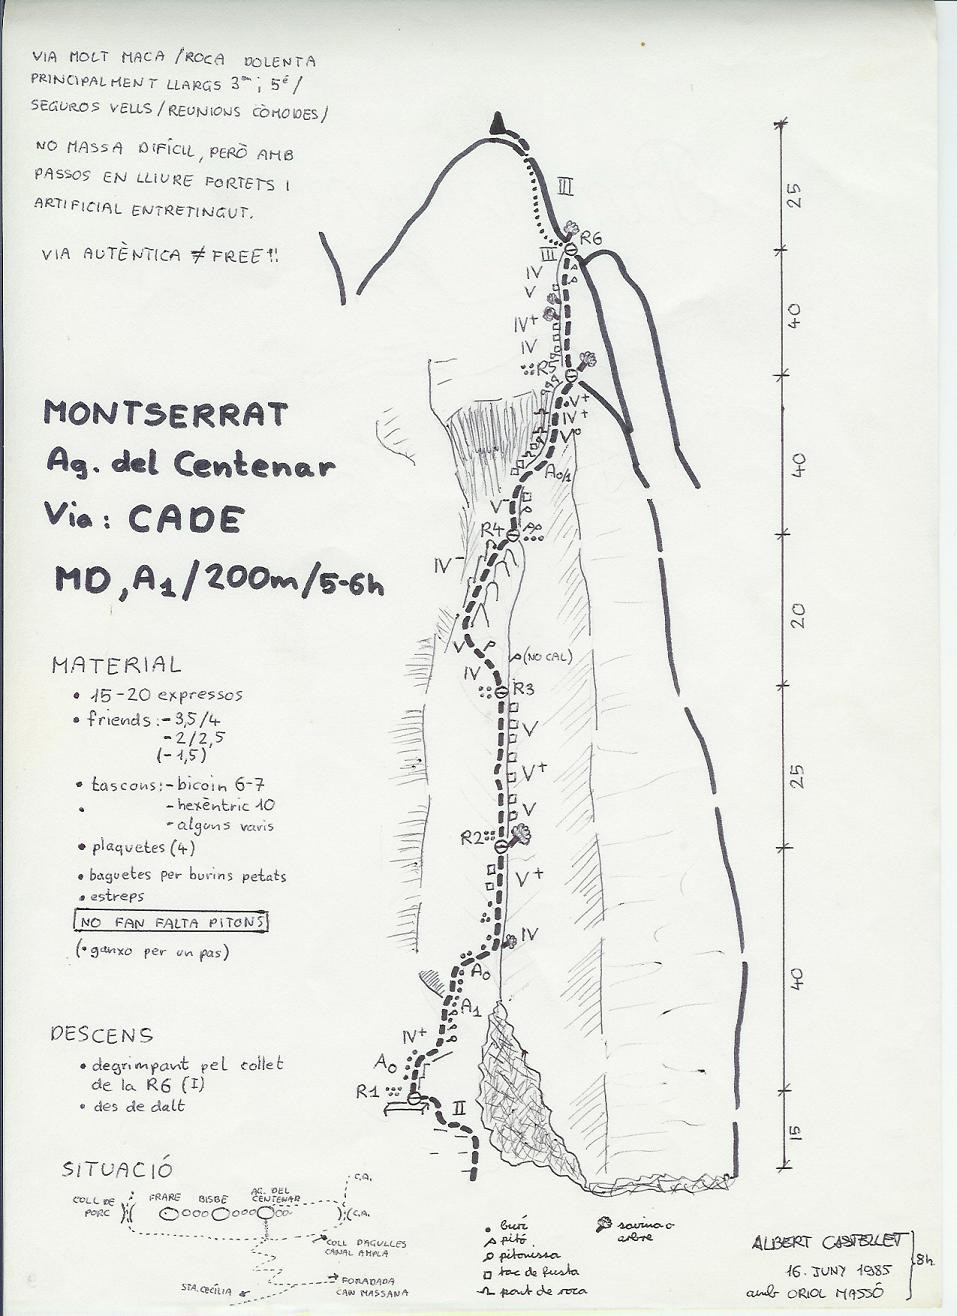 VIA MOLT MACA / ROCA DOLENTA
PRINCIPALMENT LLARGS 3er i 5é /
SEGUROS VELLS / REUNIONS CÒMODES /
NO MASSA DIFÍCIL, PERÒ AMB
PASSOS EN LLIURE FORTETS I
ARTIFICIAL ENTRETINGUT.
VIA AUTÈNTICA ≠ FREE!!
MONTSERRAT
Ag. del Centenar
Via: CADE
MD, A1/200m/5-6h
MATERIAL
• 15-20 expressos
• friends: - 3,5/4
- 2/2,5
(- 1,5)
• tascons: - bicoin 6-7
• - hexèntric 10
- alguns varis
• plaquetes (4)
• baguetes per burins petats
• estreps
NO FAN FALTA PITONS
(• ganxo per un pas)
DESCENS
• degrimpant pel collet
de la R6 (I)
• des de dalt
SITUACIÓ
COLL DE
PORC
FRARE
BISBE
AG. DEL
CENTENAR
C.A.
C.A.
COLL D'AGULLES
CANAL AMPLA
STA. CECÍLIA
FORADADA
CAN MASSANA
III
R6
III
IV
V
IV+
IV
R5
V+
IV+
V°
A0/1
V-
R4
IV-
V
(NO CAL)
IV
R3
V
V+
V
R2
V+
IV
A0
A1
IV+
A0
R1
II
25
40
40
20
25
40
15
burí
pitó
pitonissa
tac de fusta
pont de roca
savina o
arbre
ALBERT CASTELLET
16. JUNY 1985
amb ORIOL MASSÓ
8h.